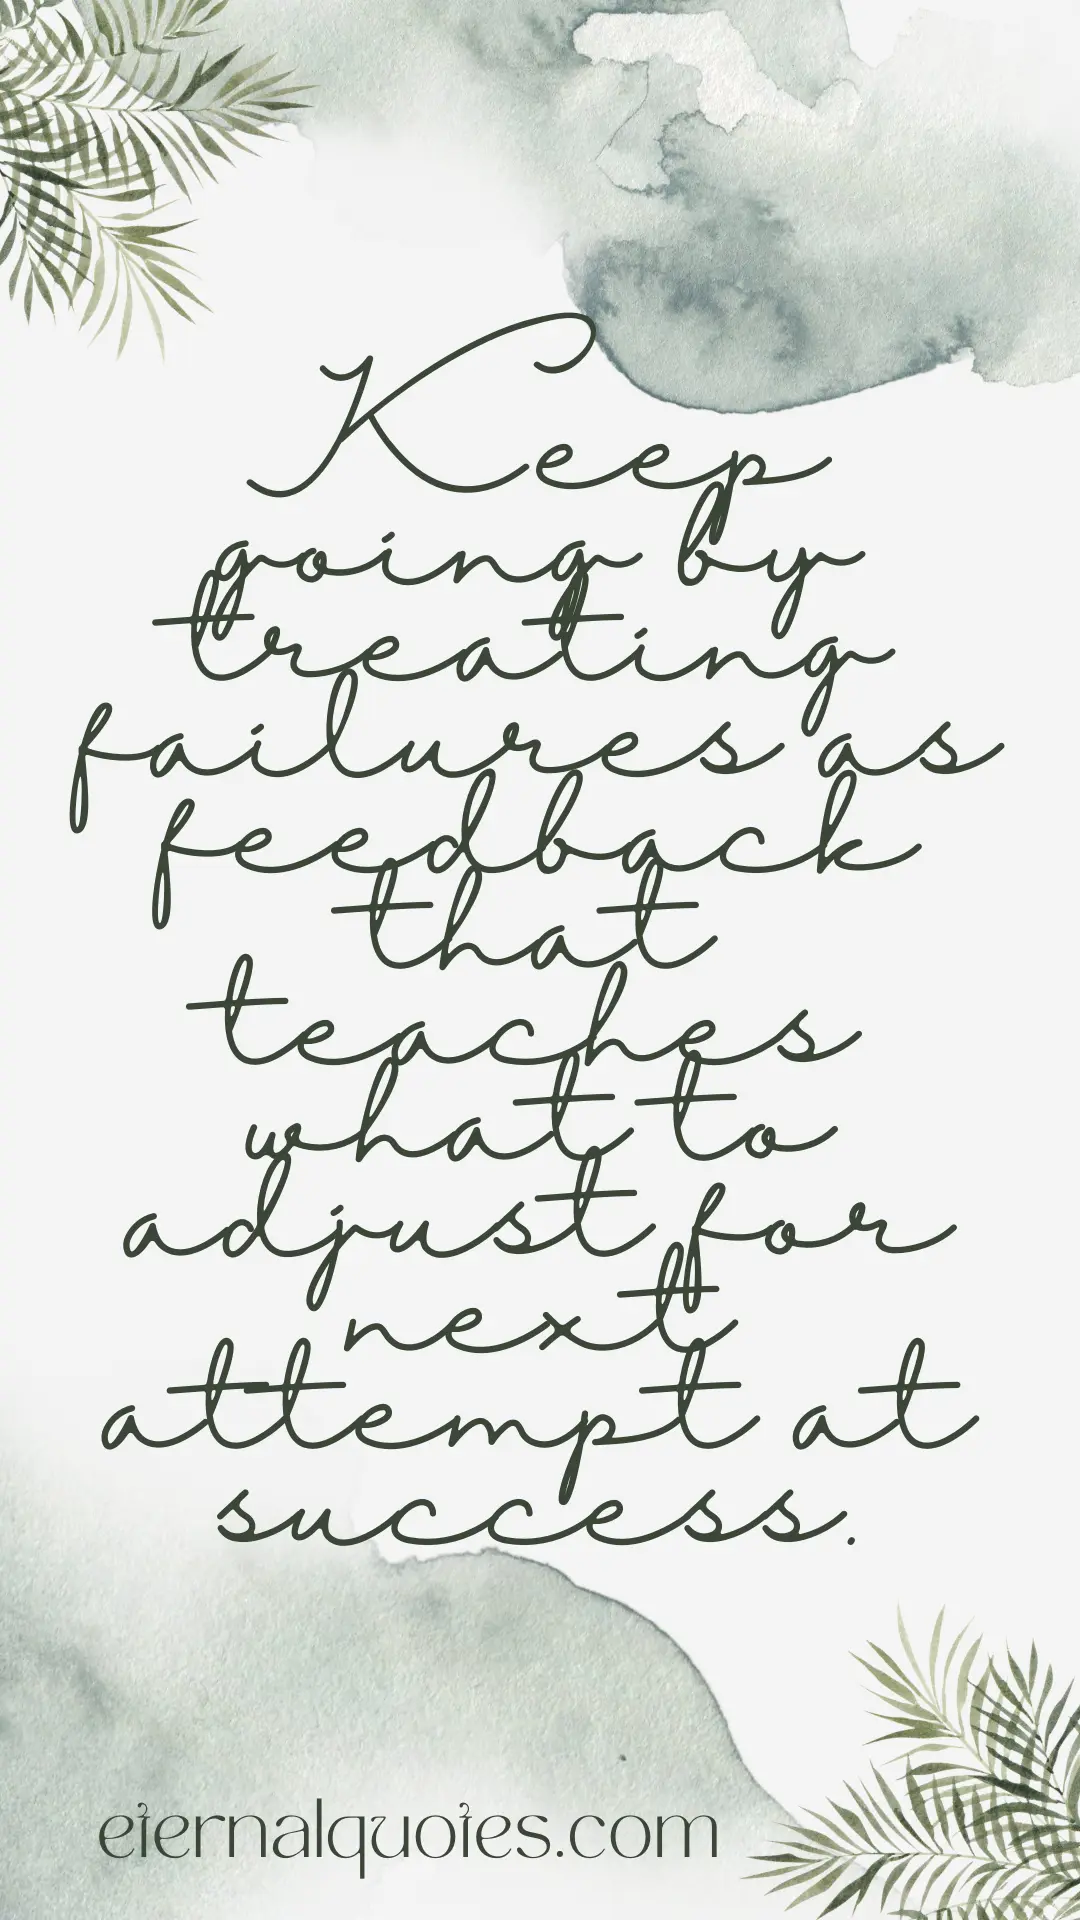 Keep
going by
treating
failures as
feedback
that
teaches
what to
adjust for
next
attempt at
success.
eternalquotes.com